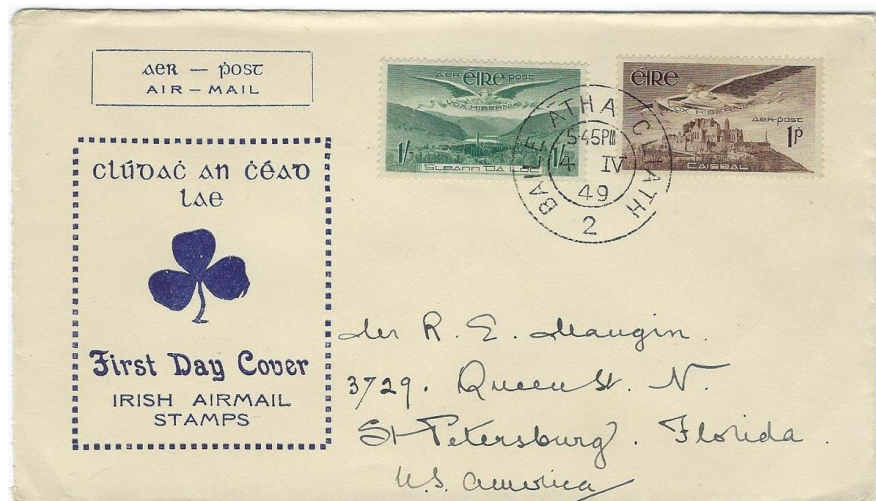 aer — ṗost
AIR – MAIL
clúdaċ an ċéad
lae
First Day Cover
IRISH AIRMAIL
STAMPS
AER ÉIRE POST
VOX HIBERNIÆ
1/- 1/-
GLEANN DÁ LOĊ
ÉIRE
VOX HIBERNIÆ
AER-POST
1p
CAISEAL
BAILE ÁTHA CLIATH
5-45PM
4 IV
49
2
Mr R. E. Maugin.
3729. Queen St. N.
St Petersburg. Florida.
U.S. America